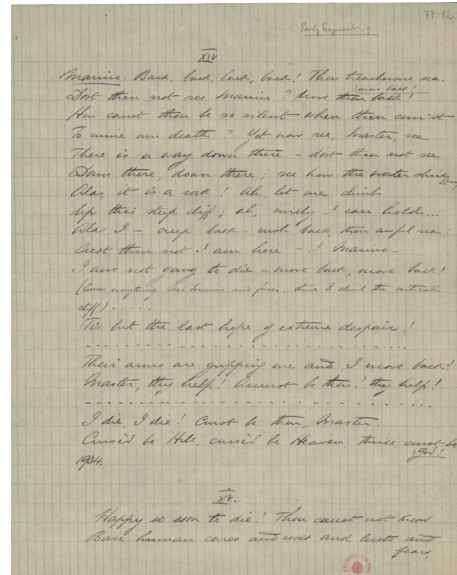 77-12
Early Fragment - 9
XIV
Marino: Back, back, back, back! Thou treacherous sea.
Dost thou not see Marino? Move then back!
move back!
How canst thou be so silent when thou com'st
To our death? Yet now see, Master, see
There is a way down there - dost thou not see
Down there, down there; see how the water
Alas, it is a rock! Ah, let me climb
Up this steep cliff; oh, surely I can hold...
Alas I - creep back - rush back, thou awful sea!
Seest thou not I am here - I Marino -
I am not going to die - move back, move back!
everything and to climb the vertical
cliff) .....
'Tis but the last hope of extreme despair!
Their arms are gripping me and I move back!
Master, thy help! Curs'd be thou! thy help!
I die, I die! Curst be thou, Master.
Cursèd be Hell, cursèd be Heaven, thrice curst be
God!
1904.
XV.
Happy so soon to die! Thou canst not know
Base human cares and woes and lusts and
fears